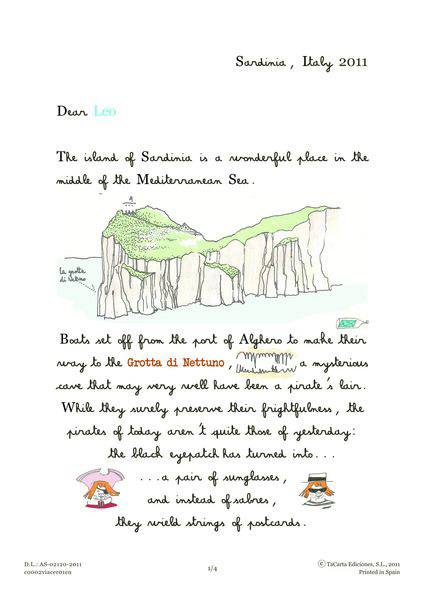 Sardinia, Italy 2011
Dear Leo
The island of Sardinia is a wonderful place in the
middle of the Mediterranean Sea.
la grotta
di Nettuno
Boats set off from the port of Alghero to make their
way to the Grotta di Nettuno, a mysterious
cave that may very well have been a pirate's lair.
While they surely preserve their frightfulness, the
pirates of today aren't quite those of yesterday:
the black eyepatch has turned into...
...a pair of sunglasses,
and instead of sabres,
they wield strings of postcards.
D.L.: AS-02120-2011
c0002viacer01en
1/4
© TaCarta Ediciones, S.L., 2011
Printed in Spain